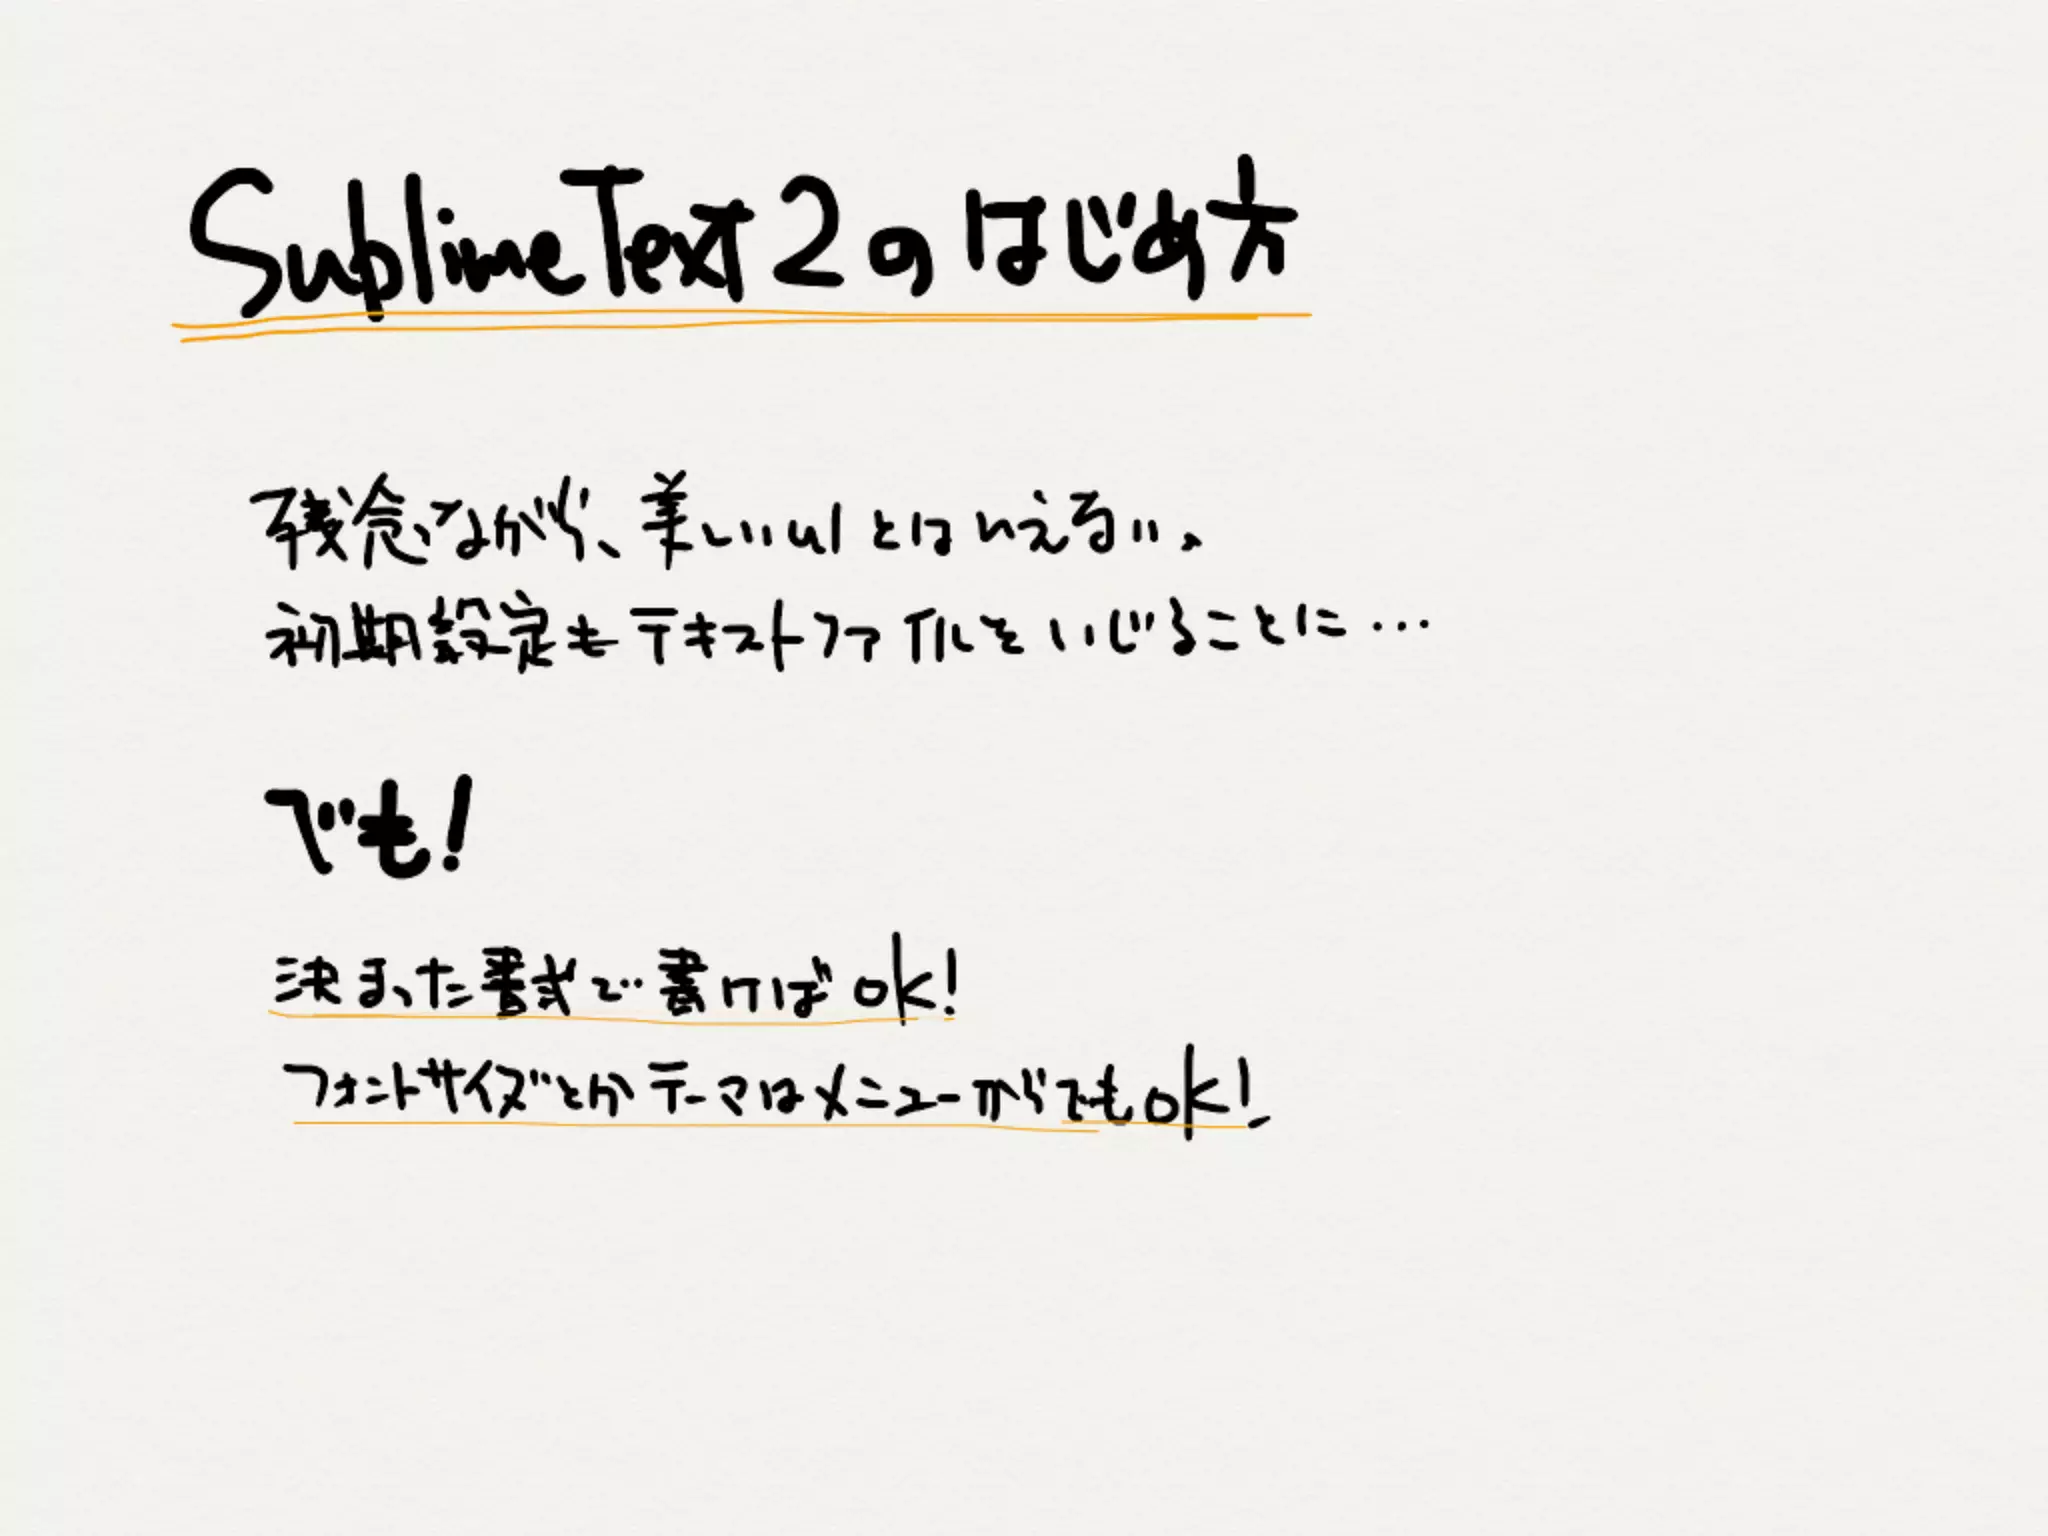 SublimeText2のはじめ方
残念ながら、美しいUIとはいえない。
初期設定もテキストファイルをいじることに…
でも!
決まった書式で書けばOK!
フォントサイズとかテーマはメニューからでもOK!